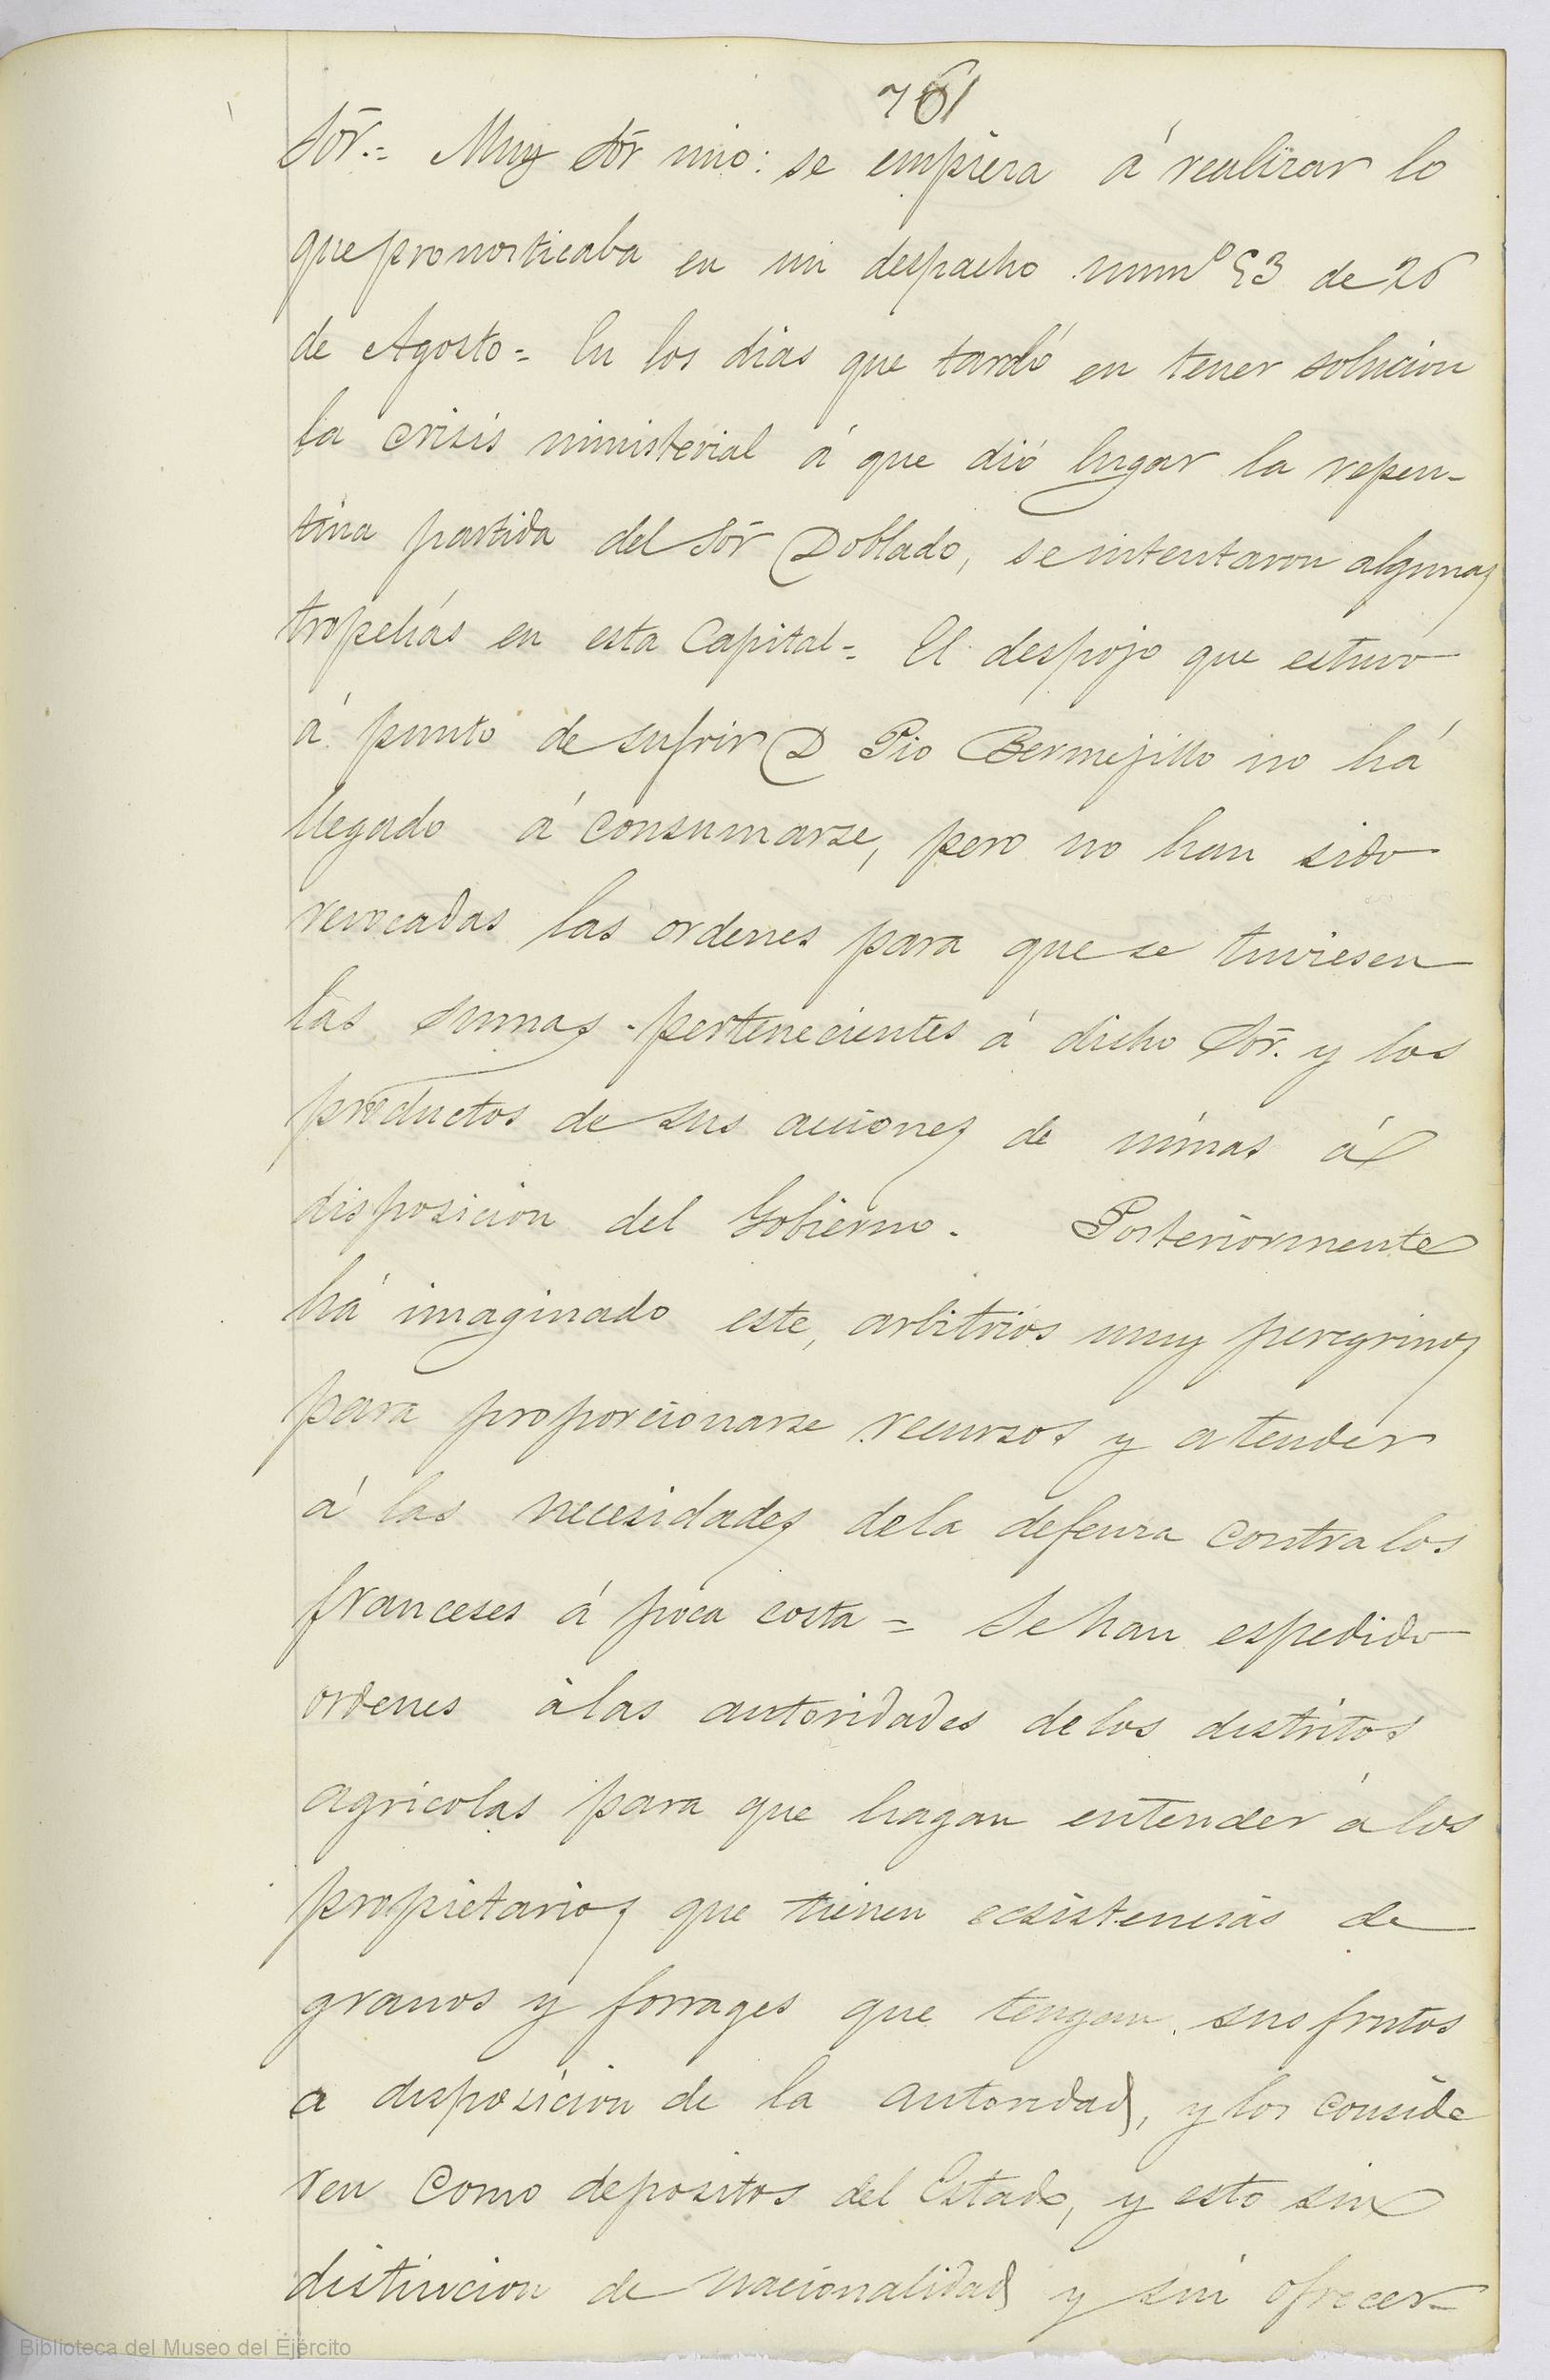 761
Sōr.= Muy Sōr mio: se empieza á realizar lo
que pronosticaba en mi despacho numº 53 de 26
de Agosto= En los dias que tardó en tener solucion
la crisis ministerial á que dió lugar la repen-
tina partida del Sōr Doblado, se intentaron algunas
tropelías en esta Capital= El despojo que estuvo
á punto de sufrir D Pio Bermejillo no há
llegado á consumarse, pero no han sido
revocadas las ordenes para que se tuviesen
las sumas pertenecientes á dicho Sōr. y los
productos de sus acciones de minas á
disposicion del Gobierno. Posteriormente
há imaginado este, arbitrios muy peregrinos
para proporcionarse recursos y atender
á las necesidades de la defensa contra los
franceses á poca costa = Se han espedido
ordenes á las autoridades de los distritos
agricolas para que hagan entender á los
propietarios que tienen ecsistencias de
granos y forrages que tengan sus frutos
a disposicion de la autoridad, y los conside
ren como depositos del Estado, y esto sin
distincion de nacionalidad y sin ofrecer
Biblioteca del Museo del Ejército